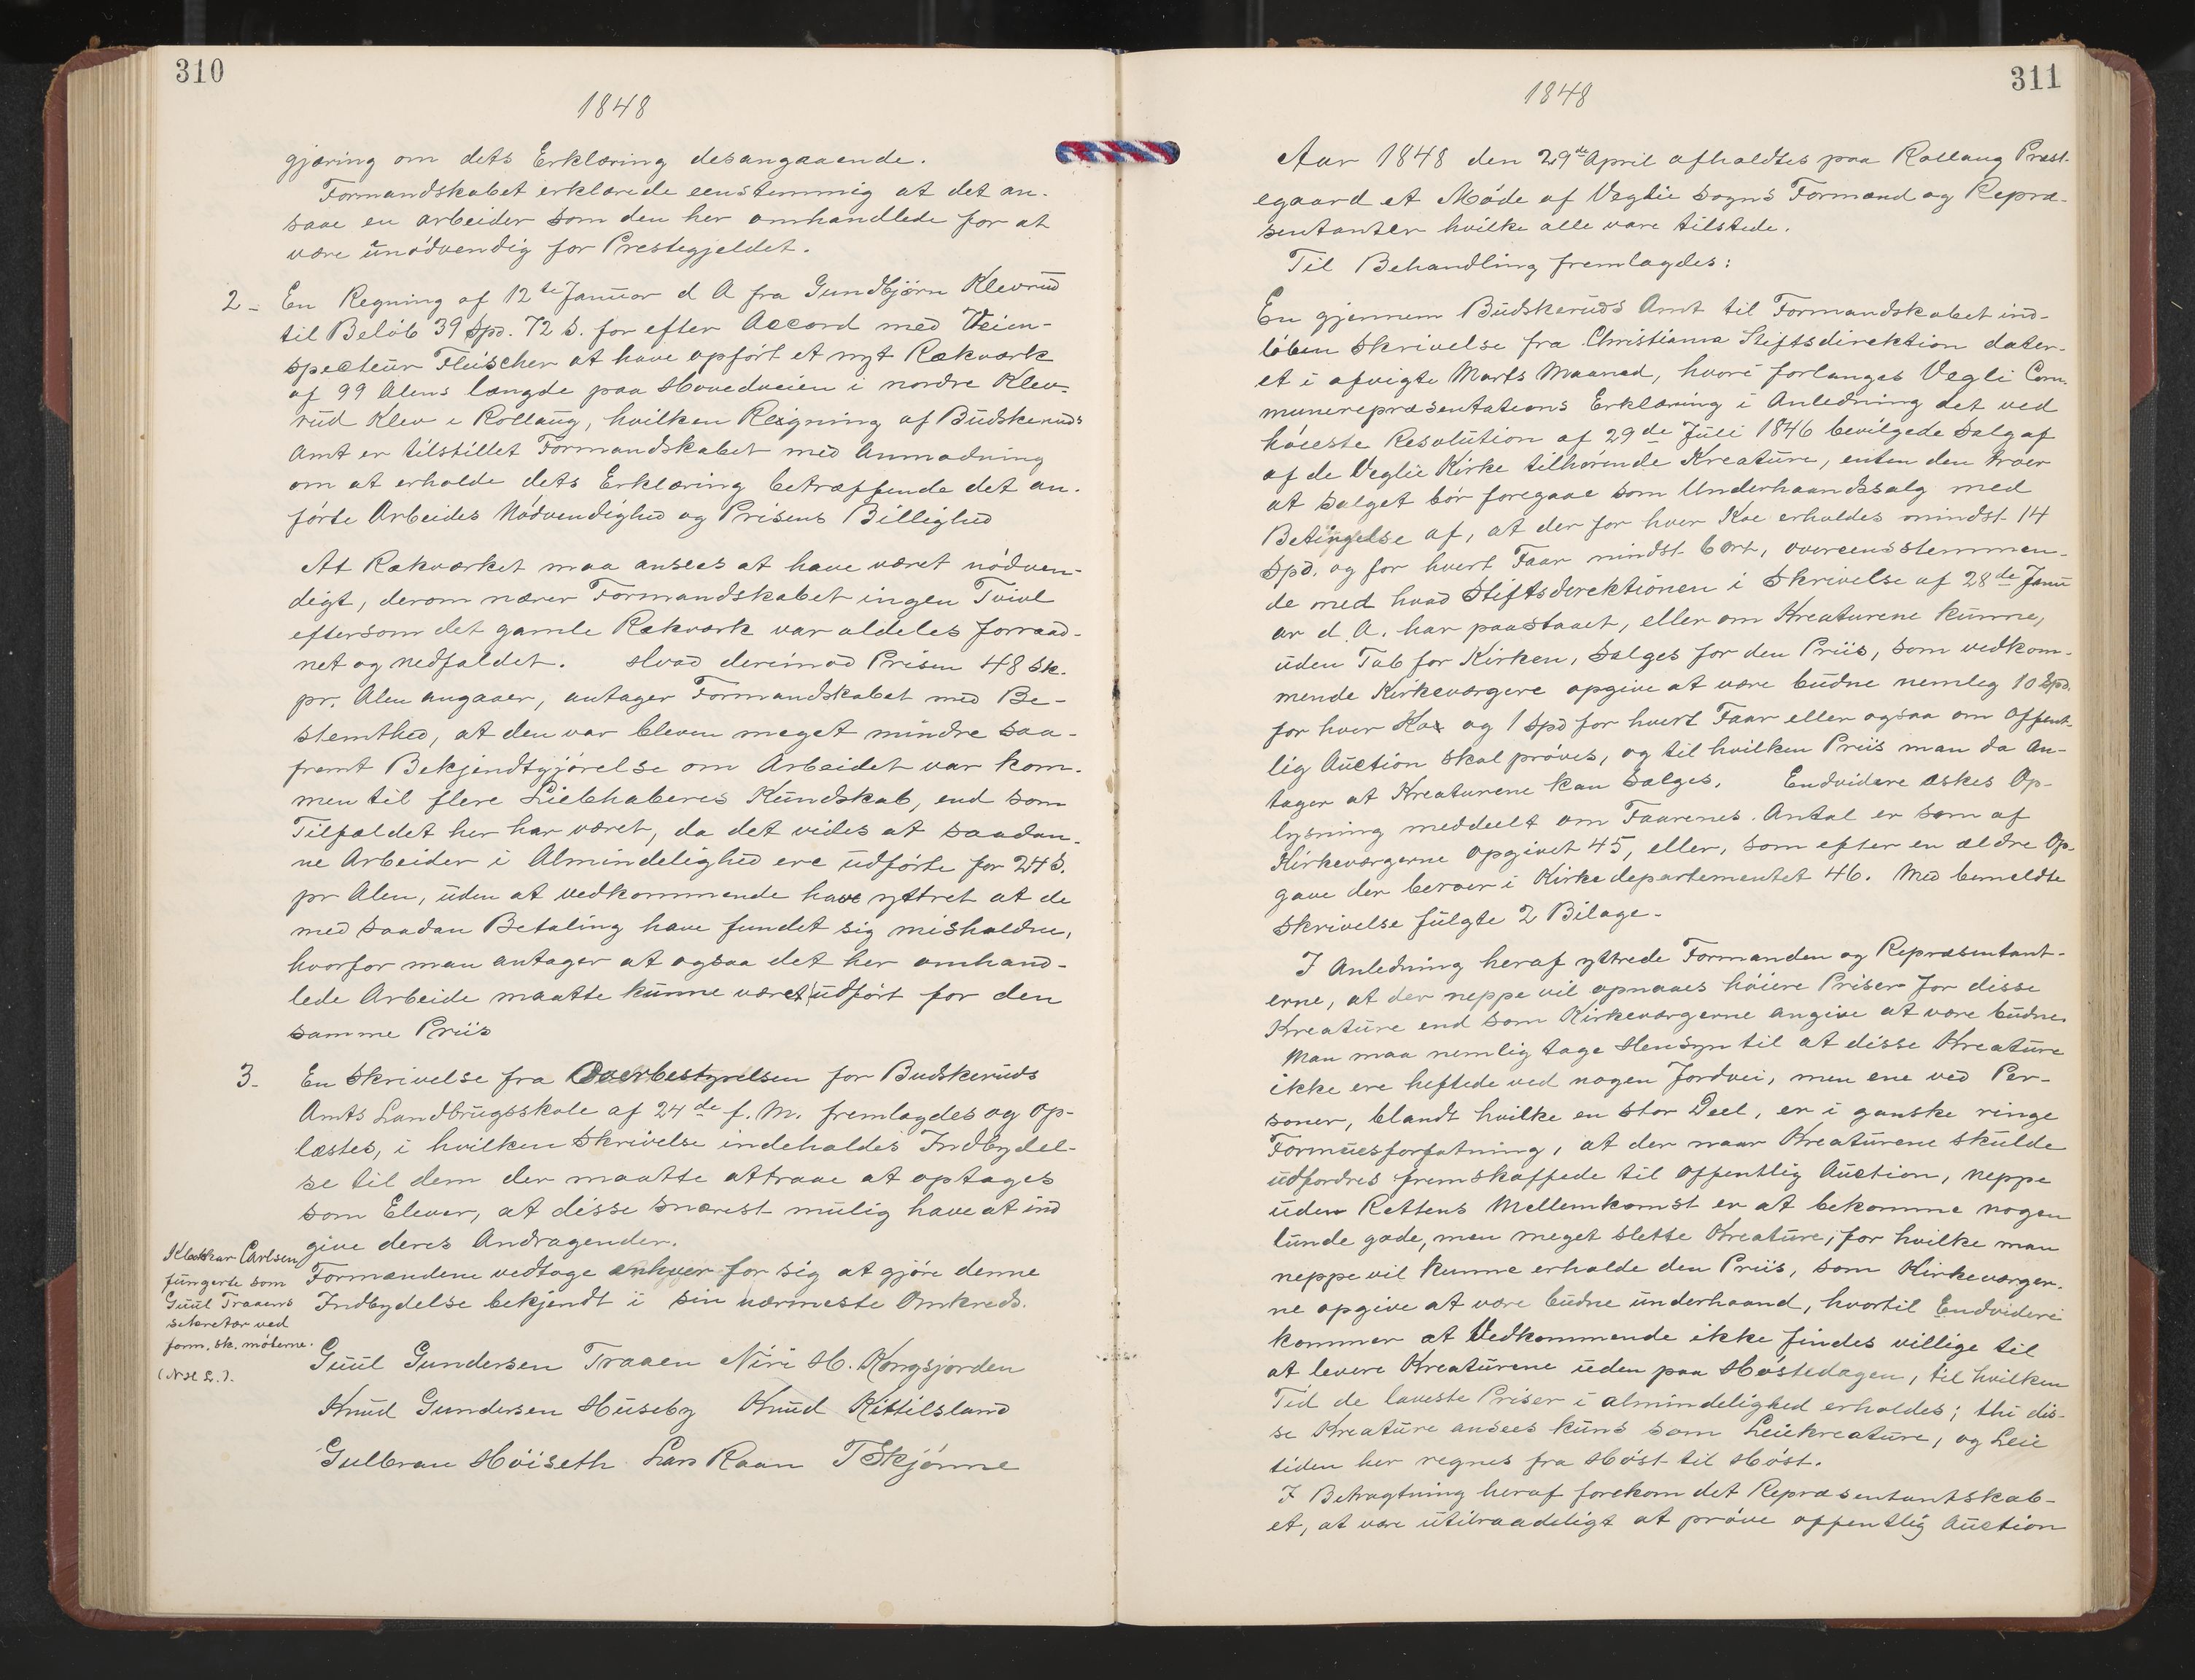 310
1848
gjæring om dets Erklæring desangaaende.
Formandskabet erklærede eenstemmig at det an-
saae en arbeider som den her omhandlede for at
være unødvendig for Prestegjeldet.
2- En Regning af 12te Januar d A fra Gundbjørn Klevrud
til Beløb 39 Spd. 72 s. for efter Accord med Veien-
specteur Fleischer at have opført et nyt Rækværk
af 99 Alens længde paa Hovedveien i nordre Klev-
rud Klev i Rollaug, hvilken Reigning af Budskeruds
Amt er tilstillet Formandskabet med Anmodning
om at erholde dets Erklæring betræffende det an-
førte Arbeides Nødvendighed og Prisens Billighed
At Rækværket maa ansees at have været nødven-
digt, derom nærer Formandskabet ingen Tvivl
eftersom det gamle Rækværk var aldeles forraad-
net og nedfaldet. Hvad derimod Prisen 48 sk.
pr. Alen angaaer, antager Formandskabet med Be-
stemthed, at den var bleven meget mindre saa-
fremt Bekjendtgjørelse om Arbeidet var kom-
men til flere Liebhaberes Kundskab, end som
Tilfældet her har været, da det vides at saadan-
ne Arbeider i Almindelighed ere udførte for 24 s.
pr Alen, uden at vedkommende have yttret at de
med saadan Betaling have fundet sig misholdne,
hvorfor man antager at ogsaa det her omhand-
lede Arbeide maatte kunne været udført for den
samme Priis
3- En Skrivelse fra Overbestyrelsen for Budskeruds
Amts Landbrugsskole af 24de f. M. fremlagdes og op-
læstes, i hvilken Skrivelse indeholdes Indbydel-
se til dem der maatte attraae at optages
som Elever, at disse snarest mulig have at ind
give deres Andragender.
Formændene vedtoge enhver for sig at gjøre denne
Indbydelse bekjendt i sin nærmeste Omkreds.
Klokkar Carlsen
fungerte som
Guul Traaens
sekretær ved
form. sk. møterne.
(N H L.).
Guul Gundersen Traaen Niri H. Kongsjorden
Knud Gundersen Huseby Knud Kittilsland
Gulbran Høiseth Lars Raan T Skjønne
311
1848
Aar 1848 den 29de April afholdtes paa Rollaug Præst-
egaard et Møde af Veglie Sogns Formænd og Repræ-
sentanter hvilke alle vare tilstede.
Til Behandling fremlagdes:
En gjennem Budskeruds Amt til Formandskabet ind-
løben Skrivelse fra Christiania Stiftsdirektion dater-
et i afvigte Marts Maaned, hvori forlanges Vegli Com-
munerepræsentations Erklæring i Anledning det ved
høieste Resolution af 29de Juli 1846 bevilgede Salg af
af de Veglie Kirke tilhørende Kreature, enten den troer
at Salget bør foregaae som Underhaandssalg med
Betingelse af, at der for hver Koe erholdes mindst 14
Spd. og for hvert Faar mindst 6 ort, overeensstemmen-
de med hvad Stiftsdirektionen i Skrivelse af 28de Janu
ar d. A. har paastaaet, eller om Kreaturene kunne,
uden Tab for Kirken, Sælges for den Priis, som vedkom-
mende Kirkeværgere opgive at være budne nemlig 10 Spd.
for hver Ko og 1 Spd for hvert Faar eller ogsaa om offent-
lig Auction skal prøves, og til hvilken Priis man da an-
tager at Kreaturene kan Sælges. Endvidere æskes Op-
lysning meddeelt om Faarenes Antal er som af
Kirkeværgerne opgivet 45, eller, som efter en ældre Op-
gave der beroer i Kirkedepartementet 46. Med bemeldte
Skrivelse fulgte 2 Bilage-
I Anledning heraf yttrede Formanden og Repræsentant-
erne, at der neppe vil opnaaes høiere Priser for disse
Kreature end som Kirkeværgerne angive at være budne.
Man maa nemlig tage Hensyn til at disse Kreature
ikke ere heftede ved nogen Jordvei, men ene ved Per-
soner, blandt hvilke en stor Deel, er i ganske ringe
Formuesforfatning, at der naar Kreaturene skulde
udfordres fremskaffede til offentlig Auction, neppe
uden Rettens Mellemkomst er at bekomme nogen
lunde gode, men meget slette Kreature, for hvilke man
neppe vil kunne erholde den Priis, som Kirkeværger-
ne opgive at være budne underhaand, hvortil Endvidere
kommer at Vedkommende ikke findes villige til
at levere Kreaturene uden paa Høstedagen, til hvilken
Tid de laveste Priser i almindelighed erholdes; thi dis-
se Kreature ansees kuns som Leiekreature, og Leie
tiden her regnes fra Høst til Høst.
I Betragtning heraf forekom det Repræsentantskab-
et, at være utilraadeligt at prøve offentlig Auction